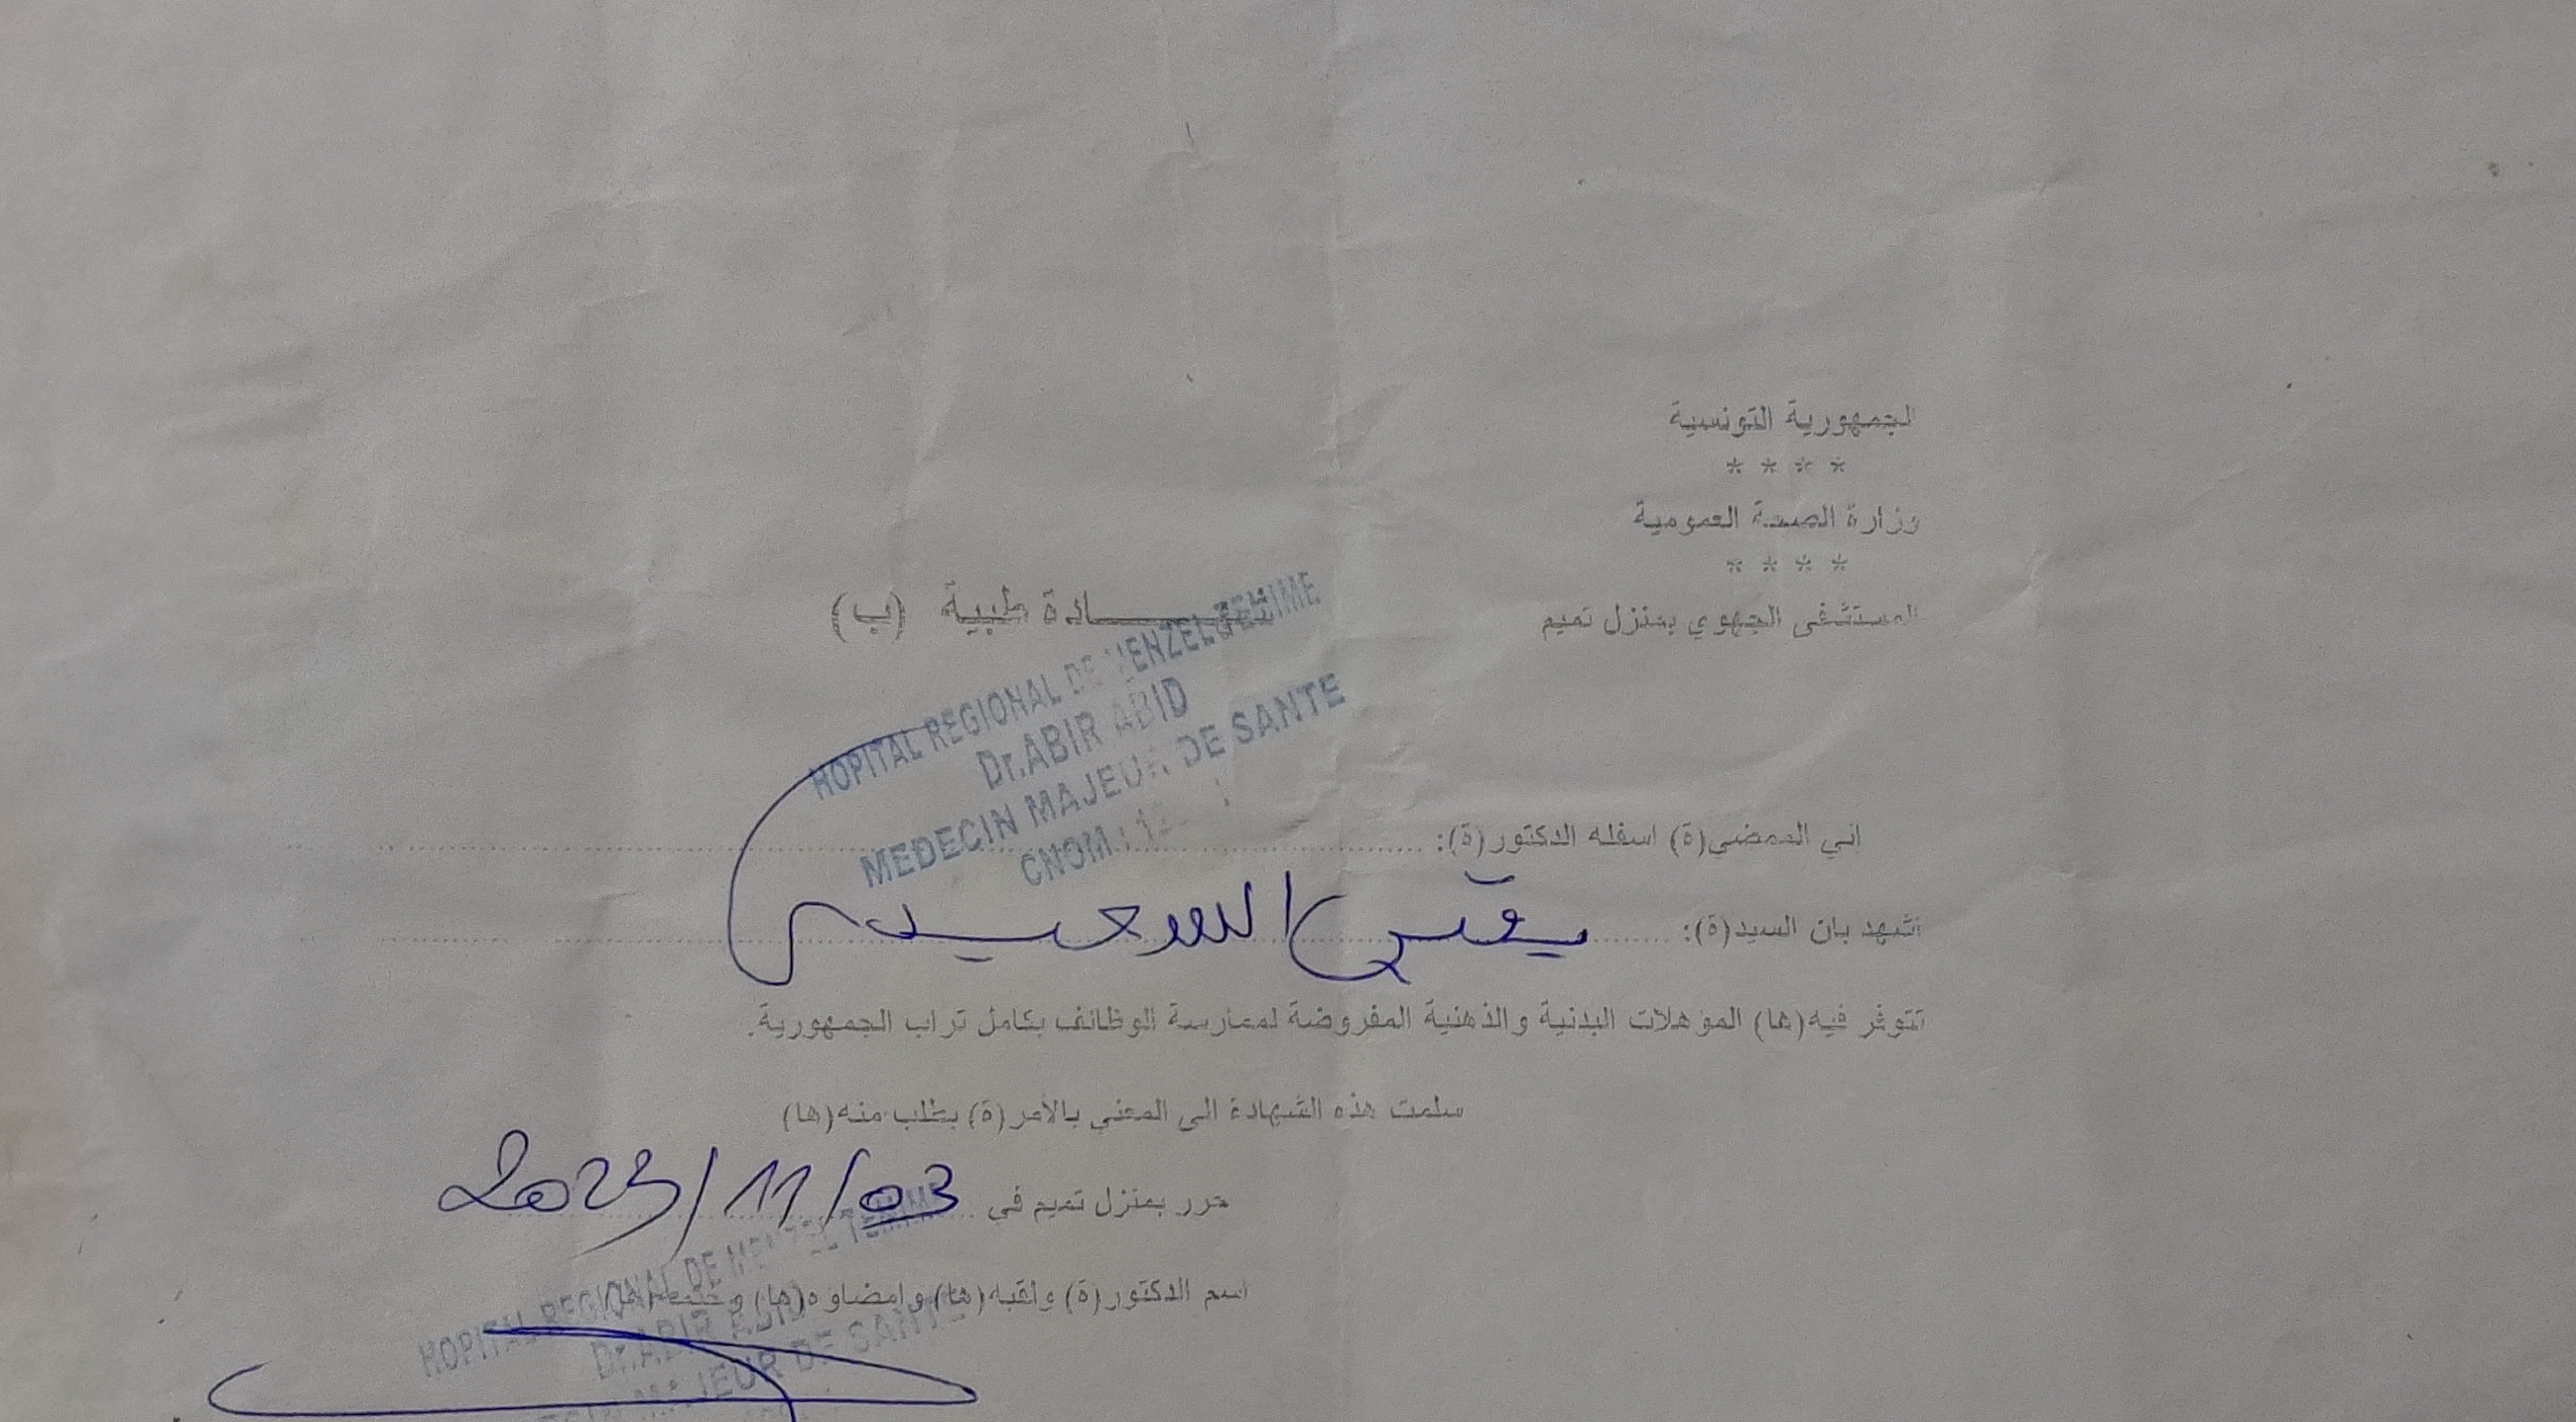 الجمهورية التونسية
* * * *
وزارة الصحة العمومية
* * * *
المستشفى الجهوي بمنزل تميم
شهـــــــــادة طبية (ب)
HOPITAL REGIONAL DE MENZEL TEMIME
Dr.ABIR ABID
MEDECIN MAJEUR DE SANTE
CNOM :
اني الممضي(ة) اسفله الدكتور(ة):
اشهد بان السيد(ة): السعيدي
تتوفر فيه(ها) المؤهلات البدنية والذهنية المفروضة لممارسة الوظائف بكامل تراب الجمهورية.
سلمت هذه الشهادة الى المعني بالأمر(ة) بطلب منه(ها)
حرر بمنزل تميم في 2023/11/03
اسم الدكتور(ة) ولقبه(ها) وامضاوه(ها)
HOPITAL REGIONAL DE MENZEL TEMIME
Dr.ABIR ABID
MAJEUR DE SANTE